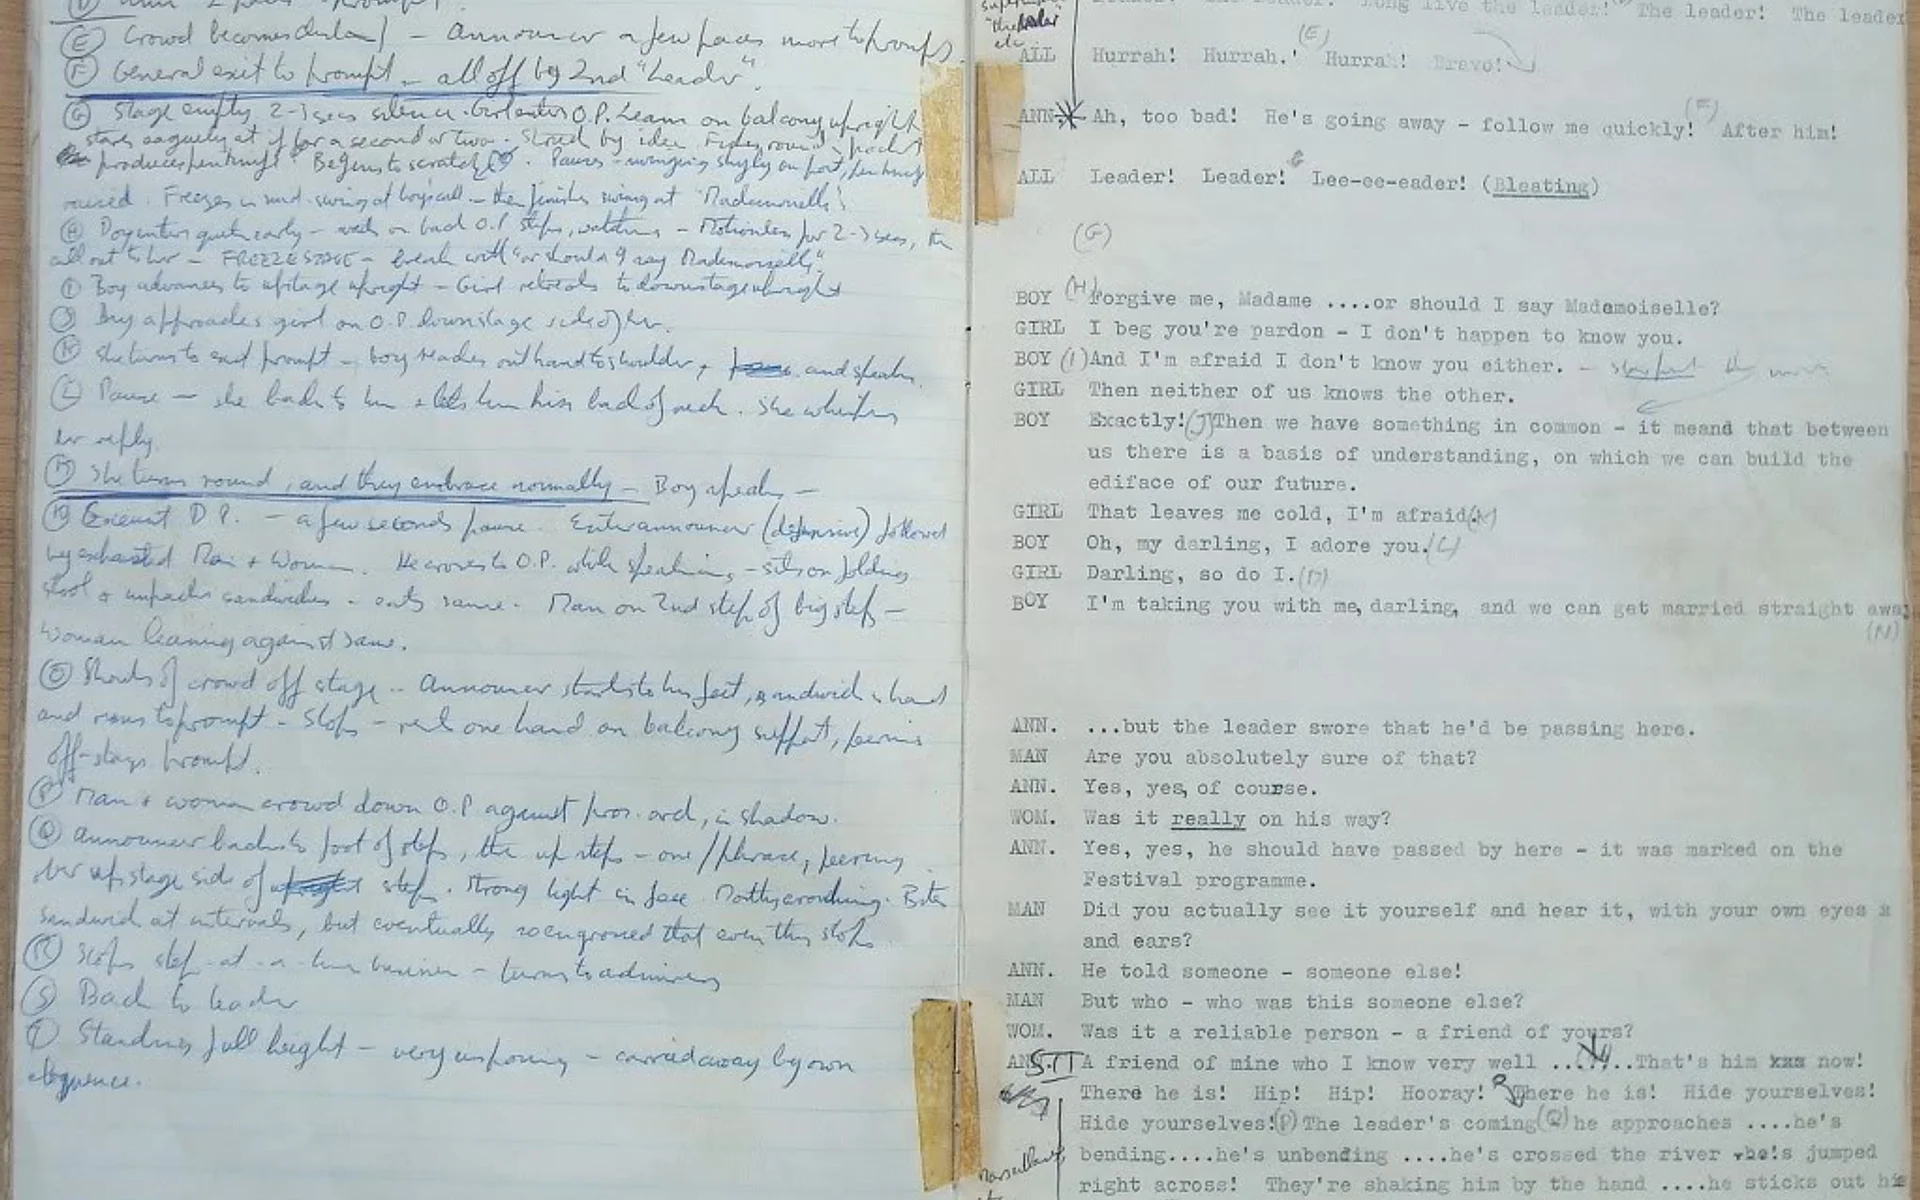 (E) Crowd becomes - Announcer a few paces more to prompt.
(F) General exit to prompt - all off by 2nd "Leader".
(G) Stage empty, 2-3 secs silence. Girl enters O.P. Leans on balcony upright,
stares vaguely at it for a second or two. Struck by idea. pocket
produces penknife. Begins to scratch. Pauses - swinging shyly on post, penknife
raised. Freezes in mid-swing at boy's call - then finishes swing at "Mademoiselle"
(H) Boy enters quietly - on back O.P. steps, watching - Motionless for 2-3 secs, then
call out to her - FREEZE STAGE - break with "or should I say Mademoiselle"
(I) Boy advances to upstage upright - Girl retreats to downstage upright
(J) Boy approaches girl on O.P. downstage side of her.
(K) She turns to exit prompt - boy reaches out hand to shoulder, and speaks.
(L) Pause - she backs to him + lets him kiss back of neck. She whispers
her reply.
(M) She turns round, and they embrace normally - Boy speaks -
(N) Exeunt D.P. - a few seconds pause. Enter announcer (defensive) followed
by exhausted Man + Woman. He crosses to O.P. while speaking, - sits on folding
stool + unpacks sandwiches - eats same. Man on 2nd step of big steps -
Woman leaning against same.
(O) Shouts of crowd off stage - Announcer starts to his feet, sandwich in hand
and runs to prompt - Stops - one hand on balcony support, peering
off-stage prompt.
(P) Man + woman crowd down O.P. against pros. arch, in shadow.
(Q) Announcer backs to foot of steps, then up steps - one / phrase, peering
over upstage side of steps. Strong light in face. Mostly crouching. Bites
sandwich at intervals, but eventually so engrossed that even this stops.
(R) Stops step-at-a-time business - turns to admirers
(S) Back to leader
(T) Standing full height - very imposing - carried away by own
eloquence.
"the leader" etc
Leader! The leader! Long live the leader! The leader! The leader
ALL Hurrah! Hurrah.' (E) Hurrah! Bravo!
ANN. Ah, too bad! He's going away - follow me quickly! (F) After him!
ALL Leader! Leader! Lee-ee-eader! (Bleating)
(G)
BOY (H) Forgive me, Madame ....or should I say Mademoiselle?
GIRL I beg you're pardon - I don't happen to know you.
BOY (I) And I'm afraid I don't know you either. -
GIRL Then neither of us knows the other.
BOY Exactly! (J) Then we have something in common - it meand that between
us there is a basis of understanding, on which we can build the
ediface of our future.
GIRL That leaves me cold, I'm afraid. (K)
BOY Oh, my darling, I adore you. (L)
GIRL Darling, so do I. (M)
BOY I'm taking you with me, darling, and we can get married straight away
(N)
ANN. ...but the leader swore that he'd be passing here.
MAN Are you absolutely sure of that?
ANN. Yes, yes, of course.
WOM. Was it really on his way?
ANN. Yes, yes, he should have passed by here - it was marked on the
Festival programme.
MAN Did you actually see it yourself and hear it, with your own eyes x
and ears?
ANN. He told someone - someone else!
MAN But who - who was this someone else?
WOM. Was it a reliable person - a friend of yours?
ANN. A friend of mine who I know very well ......That's him xxx now!
There he is! Hip! Hip! Hooray! There he is! Hide yourselves!
Hide yourselves! (P) The leader's coming (Q) he approaches ....he's
bending....he's unbending ....he's crossed the river he's jumped
right across! They're shaking him by the hand ....he sticks out his